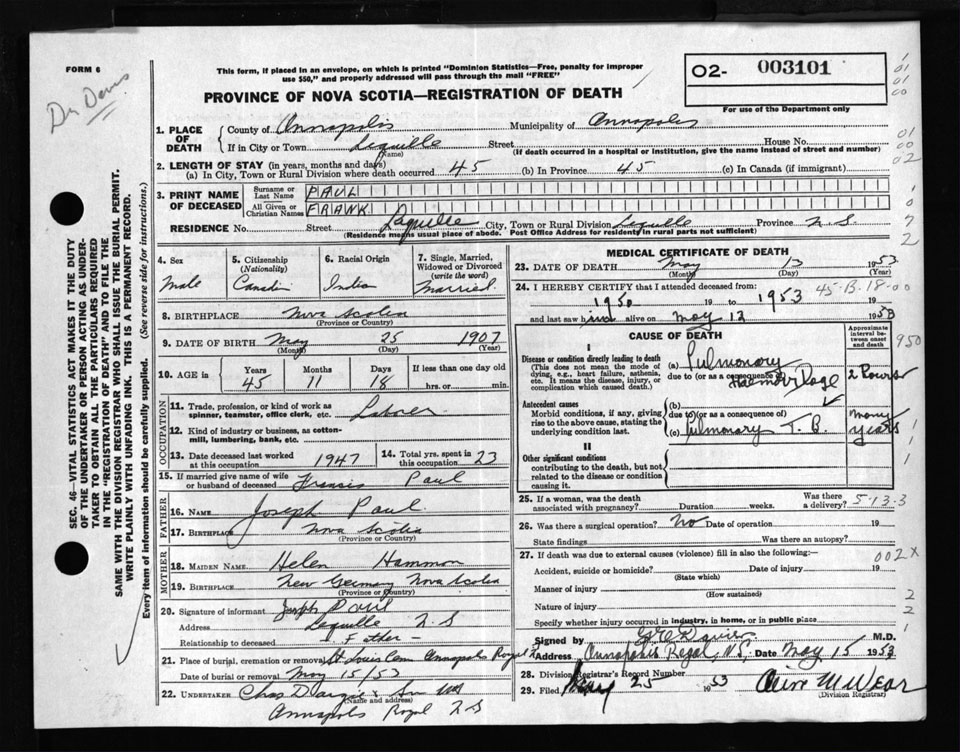 FORM 6
Dr Davis
This form, if placed in an envelope, on which is printed "Dominion Statistics—Free, penalty for improper
use $50," and properly addressed will pass through the mail "FREE"
PROVINCE OF NOVA SCOTIA—REGISTRATION OF DEATH
02- 003101
For use of the Department only
1. PLACE OF DEATH
County of Annapolis Municipality of Annapolis
If in City or Town Lequille Street House No.
(Name) (If death occurred in a hospital or institution, give the name instead of street and number)
2. LENGTH OF STAY (in years, months and days)
(a) In City, Town or Rural Division where death occurred 45 (b) In Province 45 (c) In Canada (if immigrant)
3. PRINT NAME OF DECEASED
Surname or Last Name PAUL
All Given or Christian Names FRANK
RESIDENCE No. Street Lequille City, Town or Rural Division Lequille Province N.S.
(Residence means usual place of abode. Post Office Address for residents in rural parts not sufficient)
4. Sex 5. Citizenship (Nationality) 6. Racial Origin 7. Single, Married, Widowed or Divorced (write the word)
Male Canadin Indian Married
8. BIRTHPLACE Nova Scotia
(Province or Country)
9. DATE OF BIRTH May 25 1907
(Month) (Day) (Year)
10. AGE in Years Months Days If less than one day old
45 11 18 hrs. or min.
OCCUPATION
11. Trade, profession, or kind of work as
spinner, teamster, office clerk, etc. Laborer
12. Kind of industry or business, as cotton-
mill, lumbering, bank, etc.
13. Date deceased last worked
at this occupation 1947
14. Total yrs. spent in
this occupation 23
15. If married give name of wife
or husband of deceased Francis Paul
FATHER
16. NAME Joseph Paul
17. BIRTHPLACE Nova Scotia
(Province or Country)
MOTHER
18. MAIDEN NAME Helen Hammon
19. BIRTHPLACE New Germany Nova Scotia
(Province or Country)
20. Signature of informant Joseph Paul
Address Lequille N.S
Relationship to deceased Father
21. Place of burial, cremation or removal St. Louis Cem Annapolis Royal
Date of burial or removal May 15/53
22. UNDERTAKER Chas Dargie & Son
(Name and address)
Annapolis Royal N S
MEDICAL CERTIFICATE OF DEATH
23. DATE OF DEATH May 13 1953
(Month) (Day) (Year)
24. I HEREBY CERTIFY that I attended deceased from: 45-B-18-00
1950 19 to 1953 19
and last saw him alive on May 12 1953
CAUSE OF DEATH
Approximate interval between onset and death
950
I
Disease or condition directly leading to death
(This does not mean the mode of dying, e.g., heart failure, asthenia, etc. It means the disease, injury, or complication which caused death.)
(a) Pulmonary
due to (or as a consequence of)
Haemorrhage 2 hours
Antecedent causes
Morbid conditions, if any, giving rise to the above cause, stating the underlying condition last.
(b)
due to (or as a consequence of)
(c) Pulmonary T.B. many years
II
Other significant conditions
contributing to the death, but not related to the disease or condition causing it.
25. If a woman, was the death
associated with pregnancy? Duration weeks. Was there a delivery? 5-13-3
26. Was there a surgical operation? No Date of operation 19
State findings Was there an autopsy?
27. If death was due to external causes (violence) fill in also the following:— 002X
Accident, suicide or homicide? Date of injury 19
(State which)
Manner of injury
(How sustained)
Nature of injury
Specify whether injury occurred in industry, in home, or in public place
Signed by M.D.
Address Annapolis Royal, N.S. Date May 15 1953
28. Division Registrar's Record Number
29. Filed May 25 1953
(Division Registrar)
SEC. 46—VITAL STATISTICS ACT MAKES IT THE DUTY
OF THE UNDERTAKER OR PERSON ACTING AS UNDER-
TAKER TO OBTAIN ALL THE PARTICULARS REQUIRED
IN THE "REGISTRATION OF DEATH" AND TO FILE THE
SAME WITH THE DIVISION REGISTRAR WHO SHALL ISSUE THE BURIAL PERMIT.
WRITE PLAINLY WITH UNFADING INK. THIS IS A PERMANENT RECORD.
Every item of information should be carefully supplied. (See reverse side for instructions.)